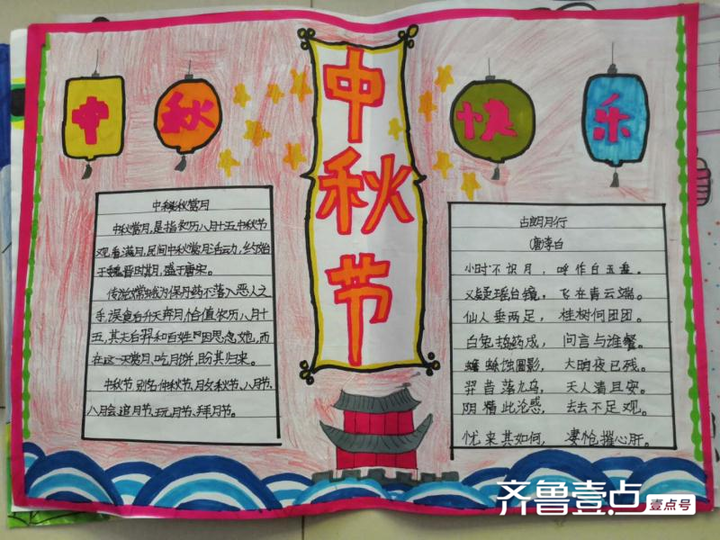 中秋快乐
中秋节
中秋赏月
中秋赏月,是指农历八月十五中秋节
观看满月,民间中秋赏月活动,约始
于魏晋时期,盛于唐宋。
传说嫦娥为保丹药不落入恶人之
手,误食白升天奔月恰值农历八月十
五,其夫后羿和百姓因思念她,而
在这一天赏月、吃月饼,盼其归来。
中秋节别名仲秋节、月夕、秋节、八月节、
八月会、追月节、玩月节、拜月节。
古朗月行
(唐)李白
小时不识月,呼作白玉盘。
又疑瑶台镜,飞在青云端。
仙人垂两足,桂树何团团。
白兔捣药成,问言与谁餐。
蟾蜍蚀圆影,大明夜已残。
羿昔落九乌,天人清且安。
阴精此沦惑,去去不足观。
忧来其如何,凄怆摧心肝。
齐鲁壹点
壹点号